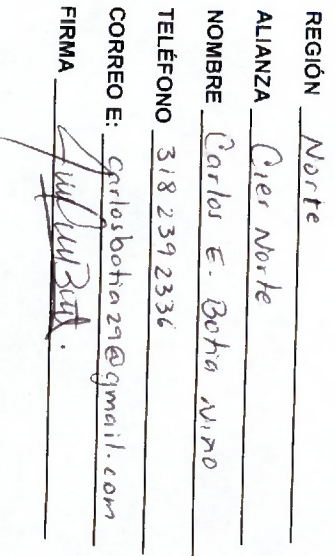 REGIÓN Norte
ALIANZA Cier Norte
NOMBRE Carlos E. Botia Nino
TELÉFONO 318 239 2336
CORREO E: carlosbotia29@gmail.com
FIRMA